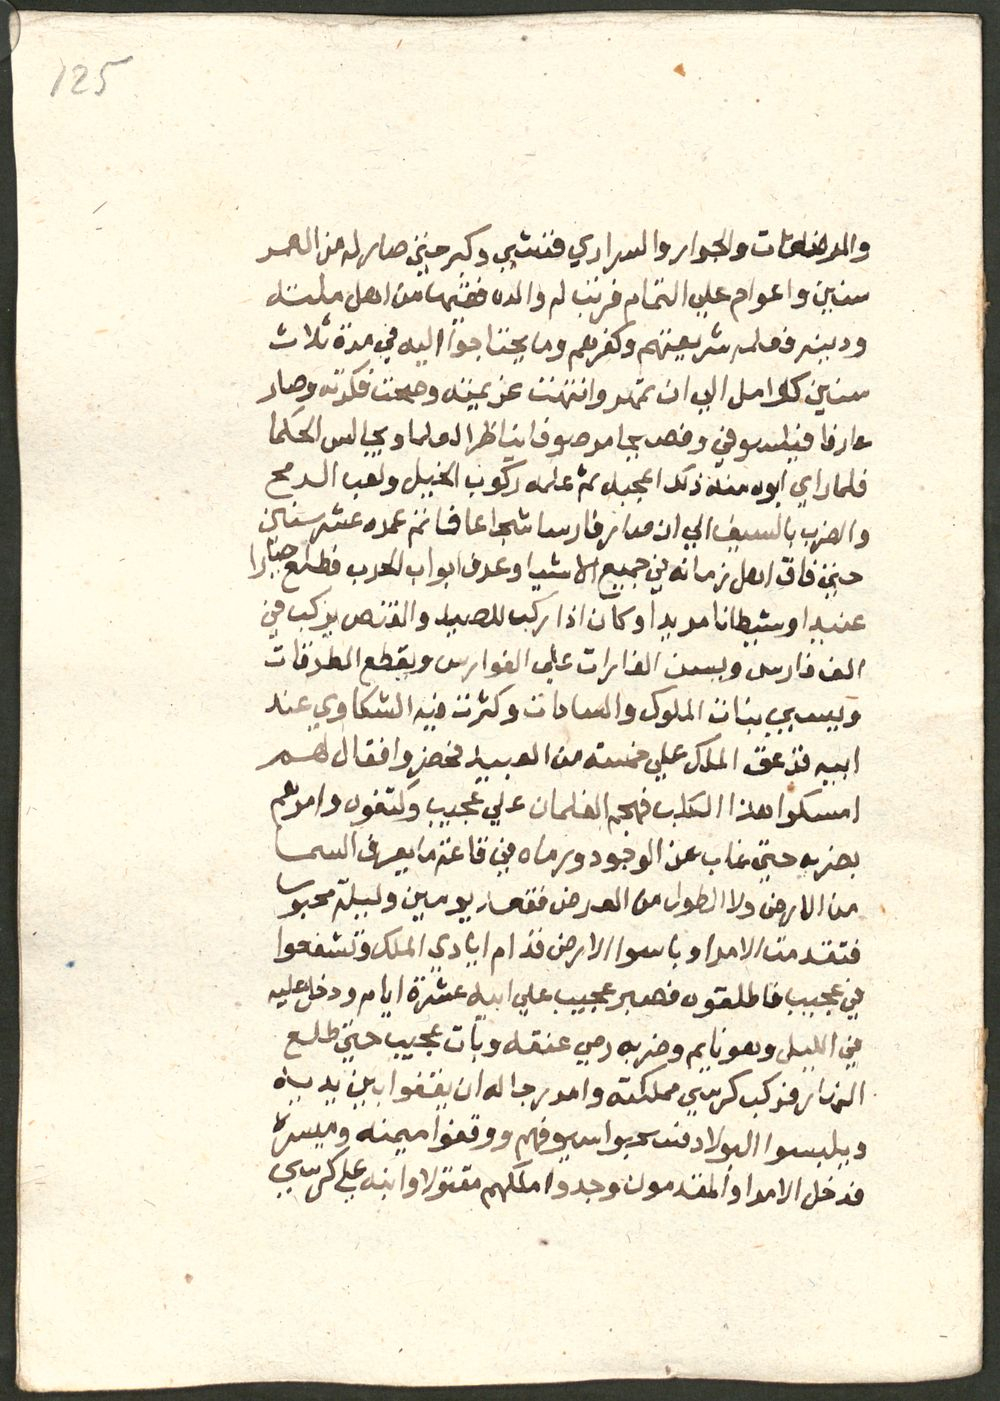 125
والمرضعات والجوار والسراري فنشي وكبر حتي صار له من العمر
سنين واعوام علي التمام فرتب له والده فقيها من اهل ملته
ودينه فعلمه شريعتهم وكفرهم وما يحتاجوا اليه في مدة ثلاث
سنين كوامل الي ان تمهر وانتهت عزيمته وصحت فكرته وصار
عارفا فيلسوفي وفصيحا موصوفا يناظر العلما ويجالس الحكما
فلما راي ابوه منه ذلك اعجبه ثم علمه ركوب الخيل ولعب الرمح
والضرب بالسيف الي ان صار فارسا شجاعا فما تم عمره عشر سنين
حتي فاق اهل زمانه في جميع الاشيا وعرف ابواب الحرب فطلع جبارا
عنيدا وشيطانا مريدا وكان اذا ركب للصيد والقنص يركب في
الف فارس ويسن الغارات علي الفوارس ويقطع الطرقات
ويسبي بنات الملوك والسادات وكثرت فيه الشكاوي عند
ابيه فزعق الملك علي خمسة من العبيد فحضروا فقال لهم
امسكوا هذا الكلب فهجم الغلمان علي عجيب وكتفوه وامرهم
بضربه حتي غاب عن الوجود ورماه في قاعة ما يعرف السما
من الارض ولا الطول من العرض فقعد يومين وليلة محبوسا
فتقدمت الامرا وباسوا الارض قدام ايادي الملك وتشفعوا
في عجيب فاطلقوه فصبر عجيب علي ابيه عشرة ايام ودخل عليه
في الليل وهو نايم وضربه رمي عنقه وبات عجيب حتي طلع
النهار فركب كرسي مملكته وامر رجاله ان يقفوا بين يديه
ويلبسوا البولاد فسحبوا سيوفهم ووقفوا ميمنه وميسرة
فدخل الامرا والمقدمون وجدوا ملكهم مقتولا وابنه علي كرسي